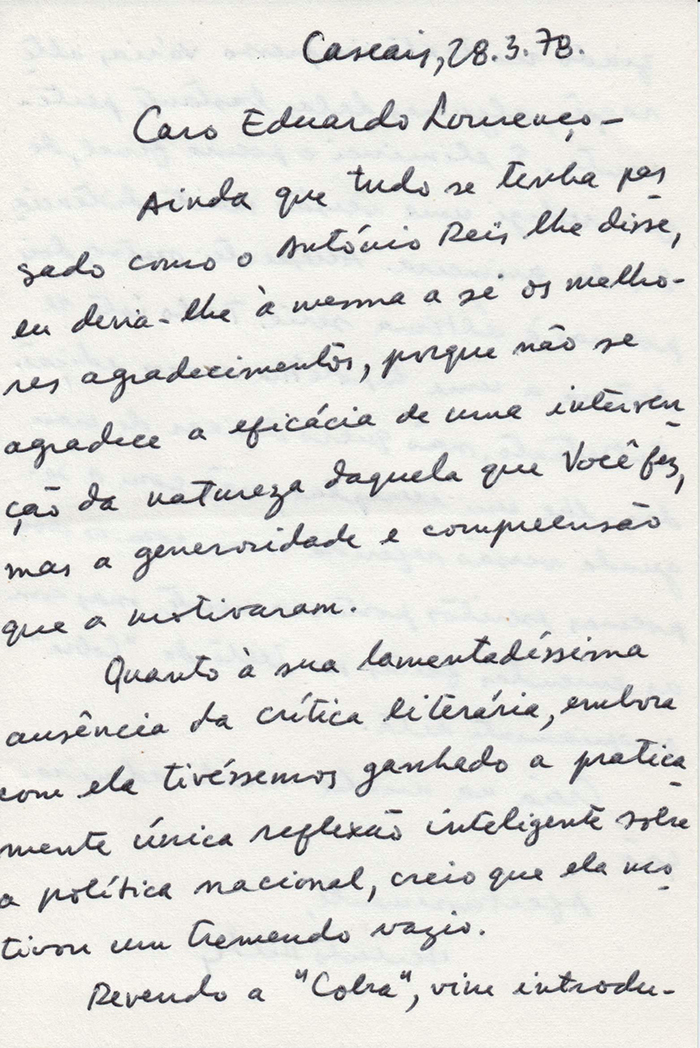 Cascais, 28.3.78.
Caro Eduardo Lourenço –
Ainda que tudo se tenha pas
sado como o António Reis lhe disse,
eu devia-lhe à mesma a se os melho-
res agradecimentos, porque não se
agradece a eficácia de uma interven
ção da natureza daquela que Você fez,
mas a generosidade e compreensão
que a motivaram.
Quanto à sua lamentadíssima
ausência da crítica literária, embora
com ela tivéssemos ganhado a pratica
mente única reflexão inteligente sobre
a política nacional, creio que ela mo
tivou um tremendo vazio.
Revendo a "Cobra", vim introdu-